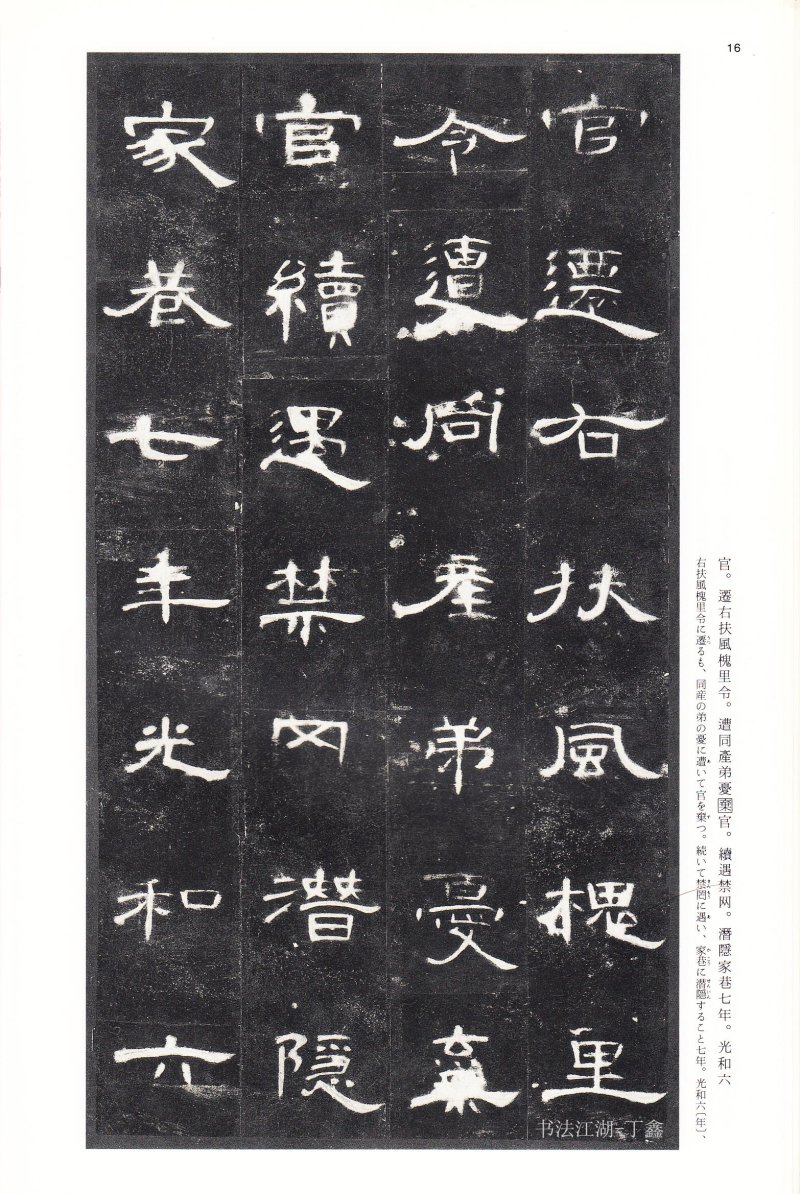 16
官遷右扶風槐里
令遭同產弟憂棄
官續遇禁网潛隱
家巷七年光和六
官。遷右扶風槐里令。遭同產弟憂棄官。續遇禁网。潛隱家巷七年。光和六
右扶風槐里令に遷るも、同産の弟の憂に遭いて官を棄つ。続いて禁罔に遇い、家巷に潜隠すること七年。光和六〔年〕、
书法江湖-丁鑫